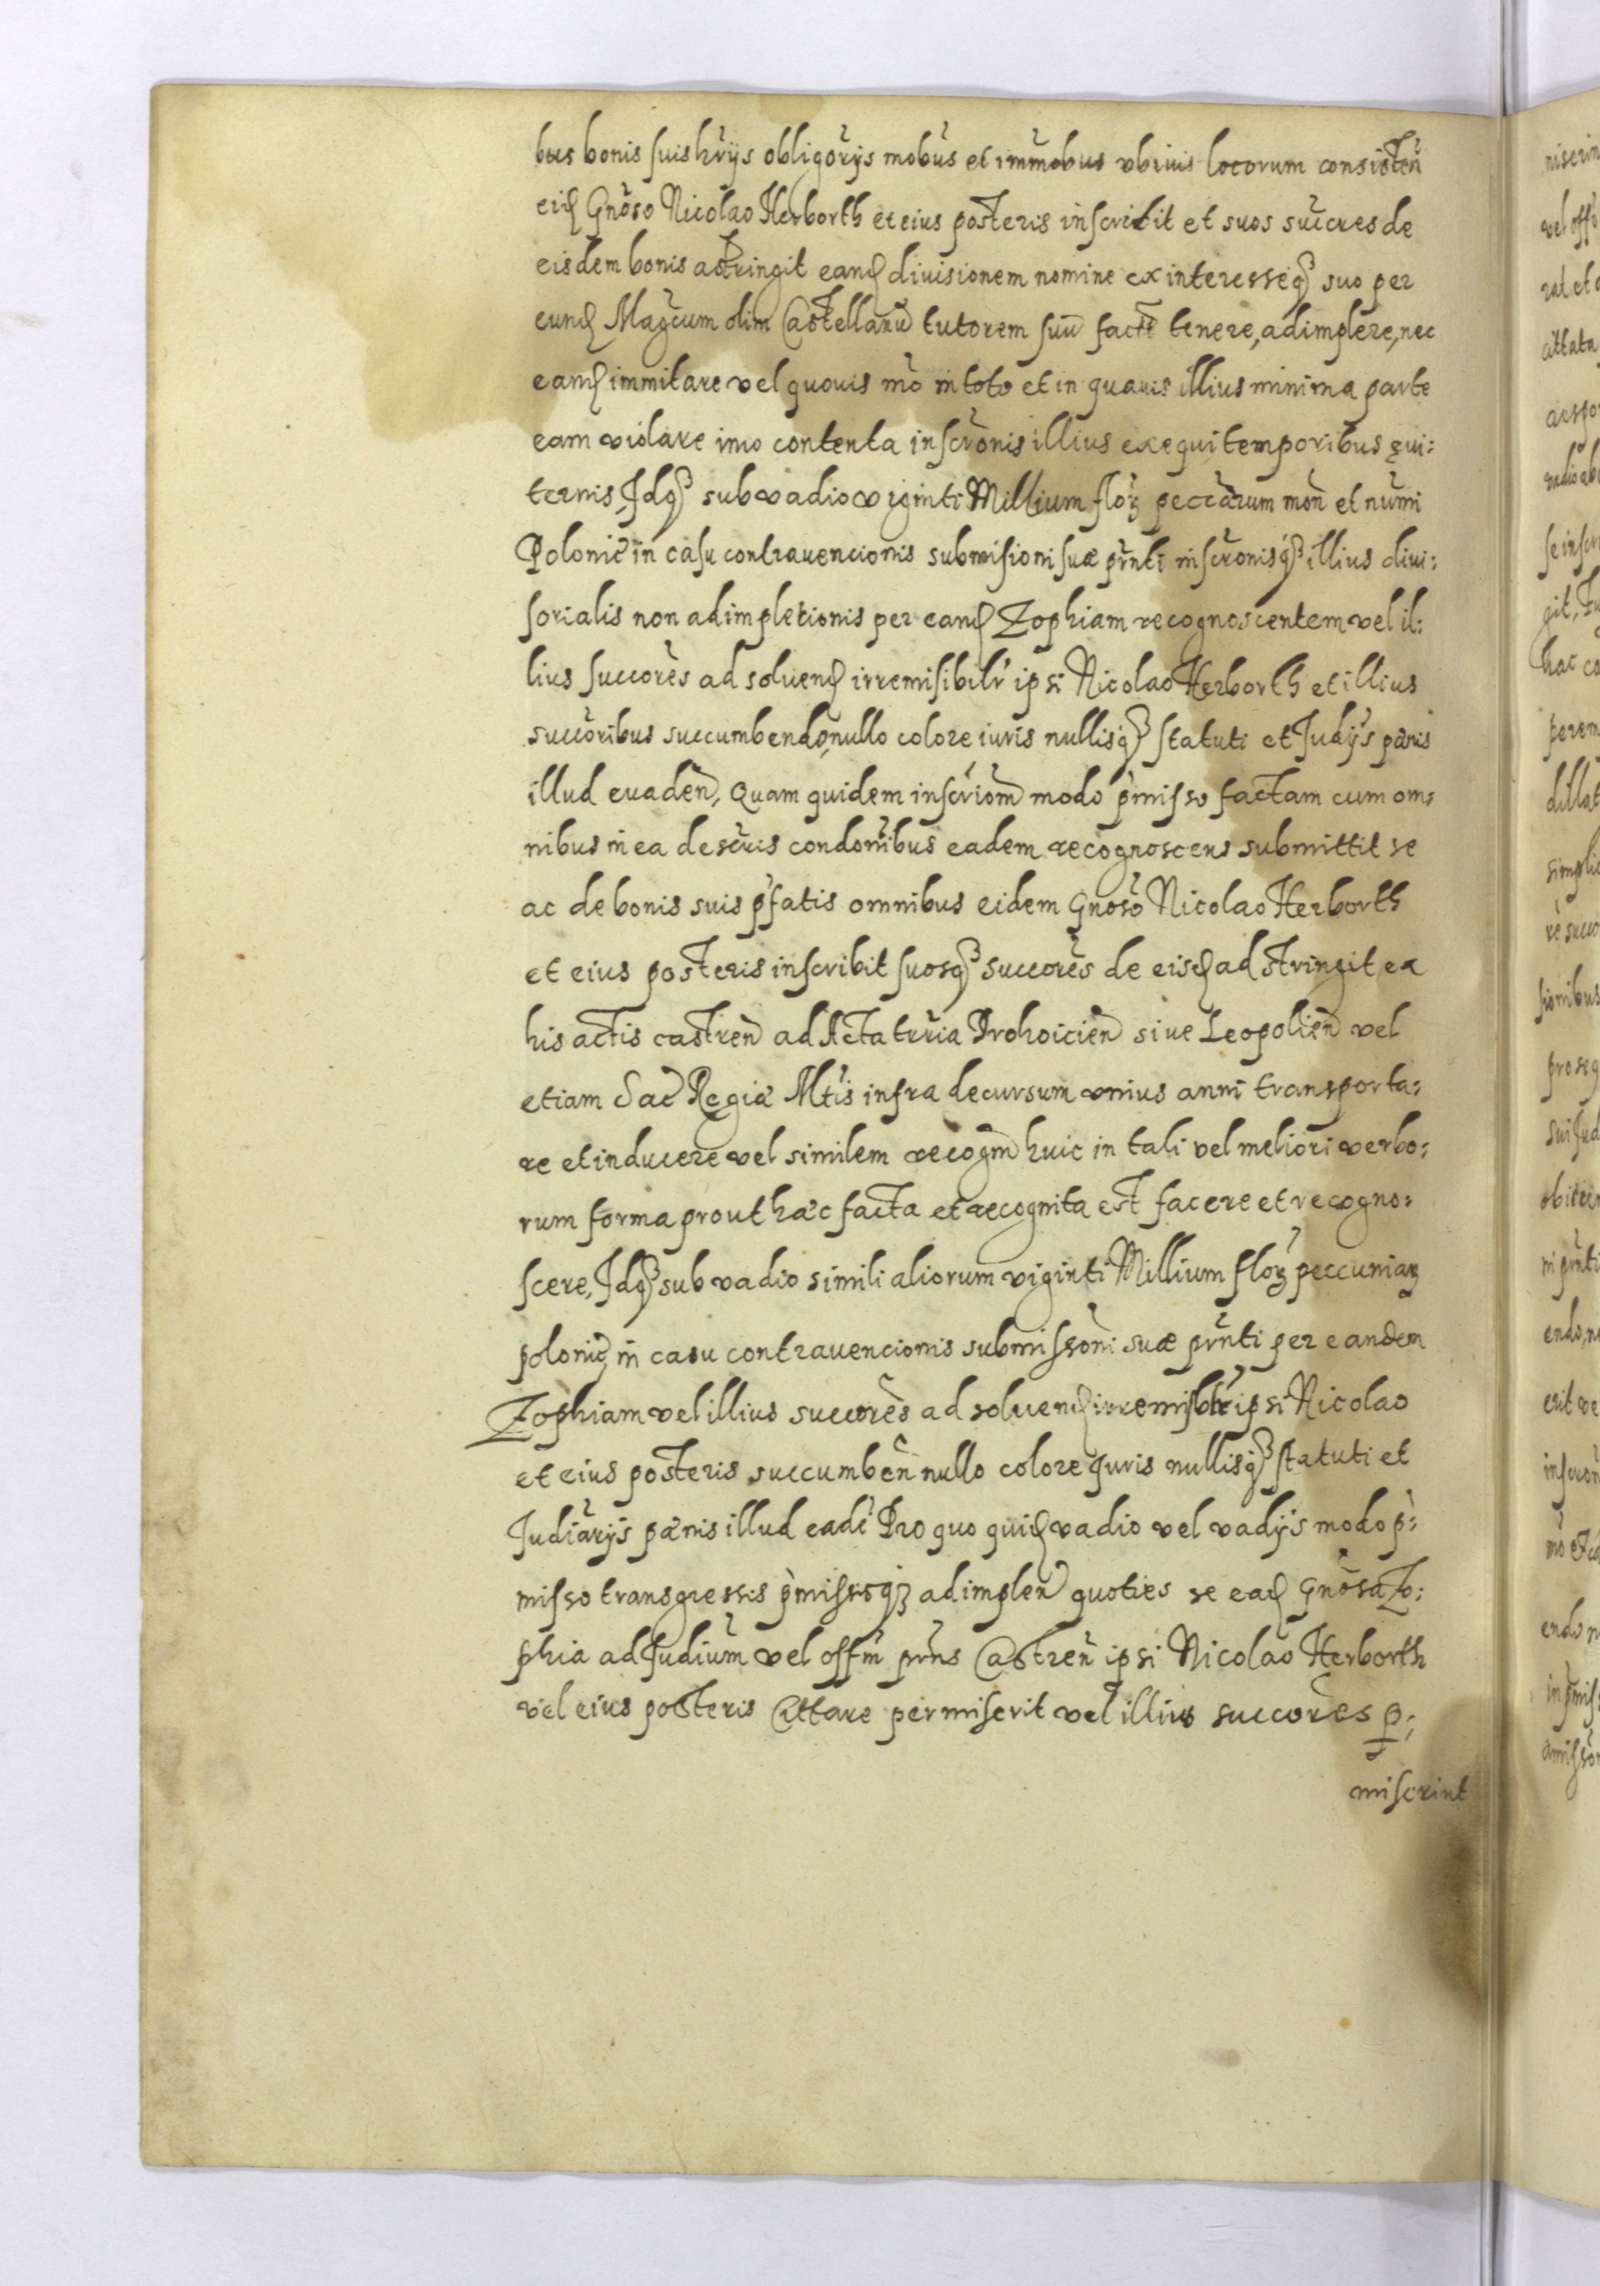 bus bonis suis hr̃ijs obligor̃ijs mobũs et imm̃obus vbiuis locorum consisteñ
eiđ Gnõso Nicolao Herborth et eius posteris inscribit et suos succr̃es de
eisdem bonis astringit eanđ diuisionem nomine ex interesseq₃ suo per
eunđ Magc̃um olim Castellanũ tutorem suũ factã tenere, adimplere, nec
eamđ immitare vel quouis mõ in toto et in quauis illius minima parte
eam violare imo contenta inscrõnis illius exequi temporibus ęui:
ternis, Jdq₃ sub vadio viginti Millium floꝝ peccãrum moñ et nũmi
Polonic̃ in casu contrauencionis submisioni suæ pr̃nti inscrõnisq₃ illius diui:
sorialis non adimpletionis per eanđ Zophiam recognoscentem vel il:
lius succorẽs ad soluenđ irremisibilr̃ ipsi Nicolao Herborth et illius
succõribus succumbendo, nullo colore iuris nullisq₃ statuti et Judijs pænis
illud euadeñ, Quam quidem inscriom̃ modo p̃misso factam cum om:
nibus in ea descr̃is condonĩbus eadem recognoscens submittit se
ac de bonis suis p̃fatis omnibus eidem Gnosõ Nicolao Herborth
et eius posteris inscribit suosq₃ succorẽs de eisđ adstringit ex
his actis castreñ ad Acta tr̃ria Drohoicieñ siue Leopolieñ vel
etiam Sac̃ Regiæ Mt̃is infra decursum vnius anni transporta:
re et inducere vel similem recogm̃ huic in tali vel meliori verbo:
rum forma prout hæc facta et recognita est facere et recogno:
scere, Jdq₃ sub vadio simili aliorum viginti Millium floꝝ peccuniaꝝ
polonic̃ in casu contrauencionis submissõni suæ pr̃nti per eandem
Zophiam vel illius succorẽs ad soluenđ irremisblr̃ ipsi Nicolao
et eius posteris succumbeñ nullo colore Juris nullisq₃ statuti et
Judiãrijs pænis illud eadẽ Pro quo quiđ vadio vel vadijs modo p̃:
misso transgressis p̃missisq₃ adimpleñ quoties se eađ Gnõsa Zo:
phia ad Judiũm vel offm̃ pr̃ns Castreñ ipsi Nicolao Herborth
vel eius posteris Cittare permiserit vel illius succorẽs ꝑ:
miserint